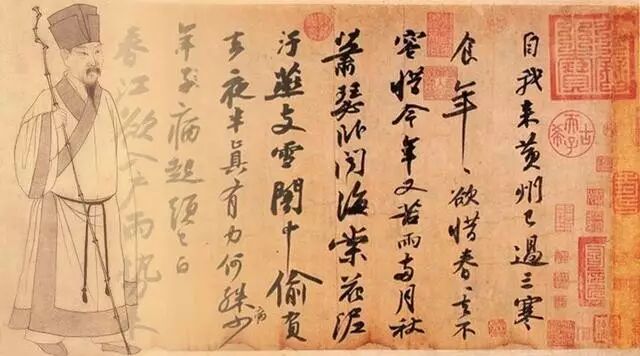 自我來黃州已過三寒
食年〻欲惜春〻去不
容惜今年又苦雨兩月秋
蕭瑟卧聞海棠花泥
汙燕支雪闇中偷負
去夜半真有力何殊少
病
年子病起頭已白
春江欲入户雨勢來
古希天子